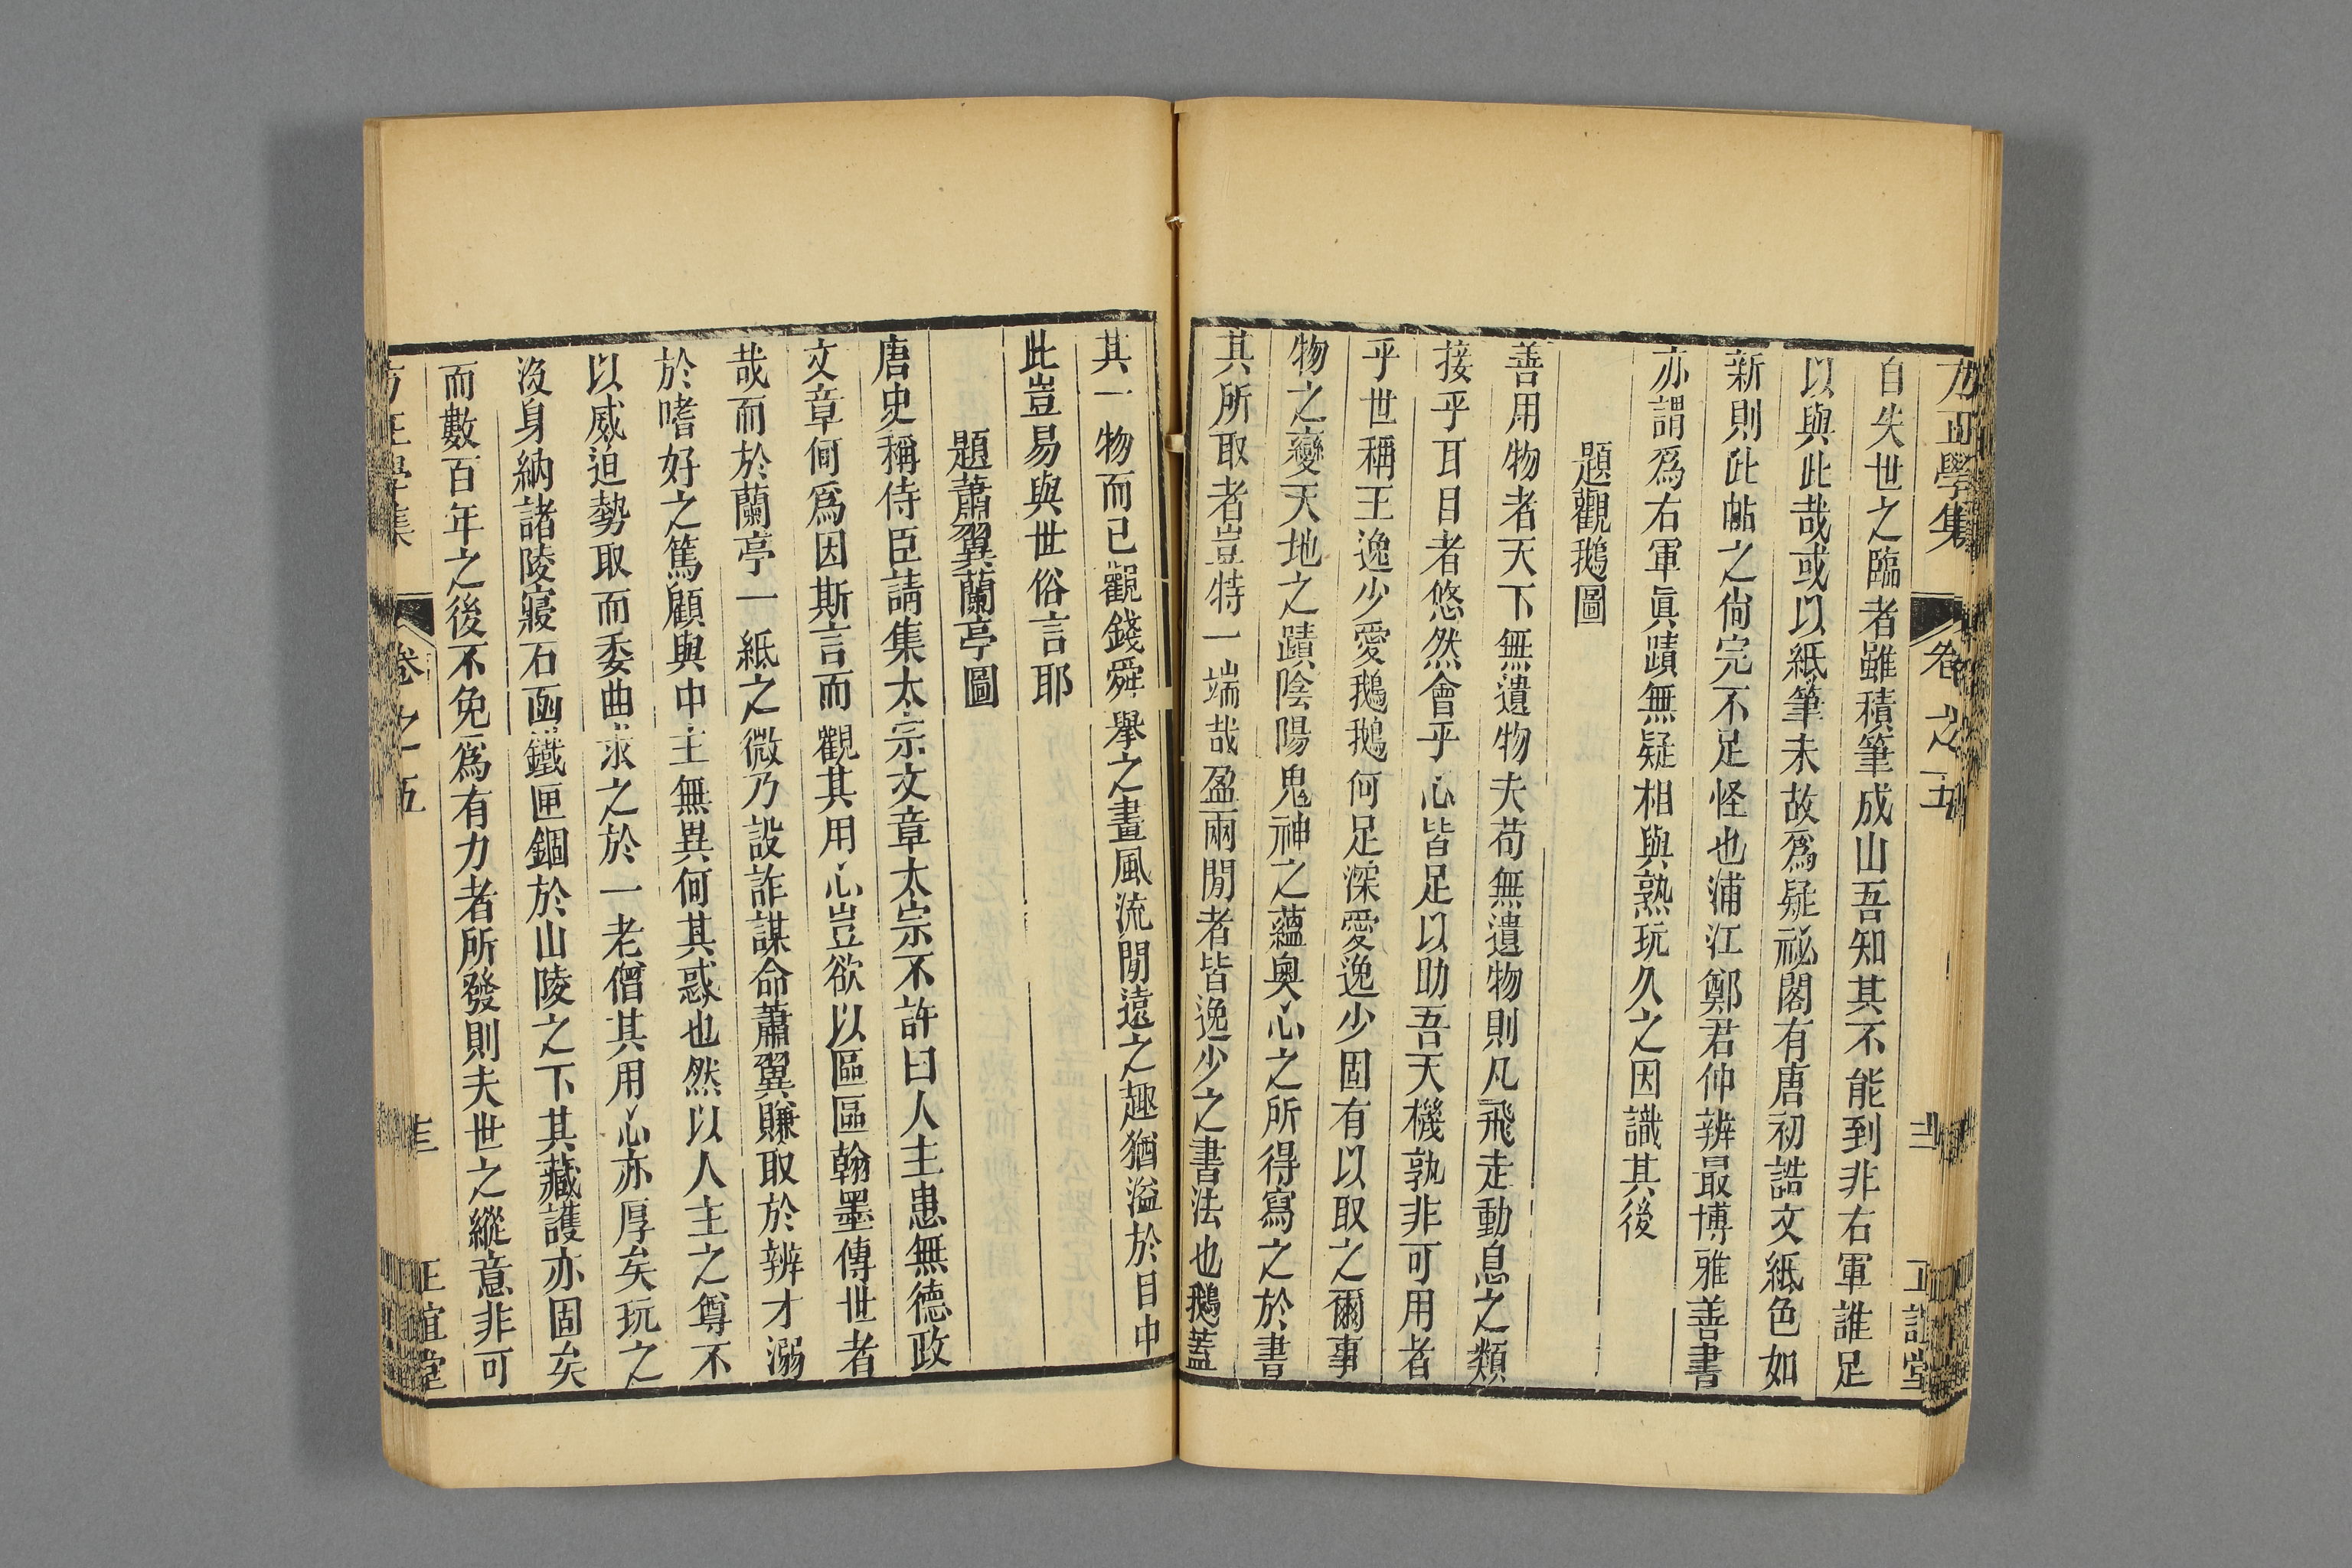 方正學集
卷之五
自失世之臨者雖積筆成山吾知其不能到非右軍誰足
以與此哉或以紙筆未故爲疑祕閣有唐初誥文紙色如
新則此帖之尙完不足怪也浦江鄭君仲辨最博雅善書
亦謂爲右軍眞蹟無疑相與熟玩久之因識其後
題觀鵝圖
善用物者天下無遺物夫苟無遺物則凡飛走動息之類
接乎耳目者悠然會乎心皆足以助吾天機孰非可用者
乎世稱王逸少愛鵝鵝何足深愛逸少固有以取之爾事
物之變天地之蹟陰陽鬼神之蘊奥心之所得寫之於書
其所取者豈特一端哉盈兩閒者皆逸少之書法也鵝蓋
其一物而已觀錢舜舉之畫風流閒遠之趣猶溢於目中
此豈易與世俗言耶
題蕭翼蘭亭圖
唐史稱侍臣請集太宗文章太宗不許曰人主患無德政
文章何爲因斯言而觀其用心豈欲以區區翰墨傳世者
哉而於蘭亭一紙之微乃設詐謀命蕭翼賺取於辨才溺
於嗜好之篤顧與中主無異何其惑也然以人主之尊不
以威迫勢取而委曲求之於一老僧其用心亦厚矣玩之
沒身納諸陵寢石函鐵匣錮於山陵之下其藏護亦固矣
而數百年之後不免爲有力者所發則夫世之縱意非可
方正學集
卷之五
正誼堂